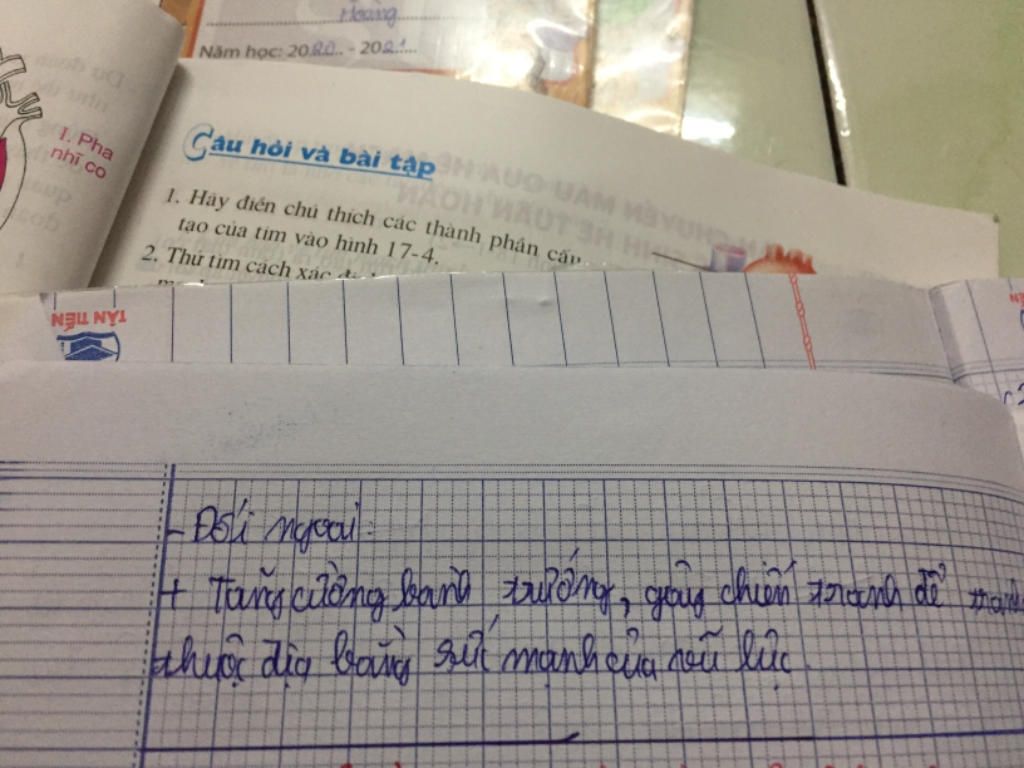 Hoàng
Năm học: 2020.. - 2021....
1. Pha
nhĩ co
Câu hỏi và bài tập
1. Hãy điền chú thích các thành phần cấu
tạo của tim vào hình 17-4.
2. Thử tìm cách xác
TÂN TIẾN
- Đối ngoại:
+ Tăng cường bành trướng, gây chiến tranh để
thuộc địa bằng sức mạnh của vũ lực